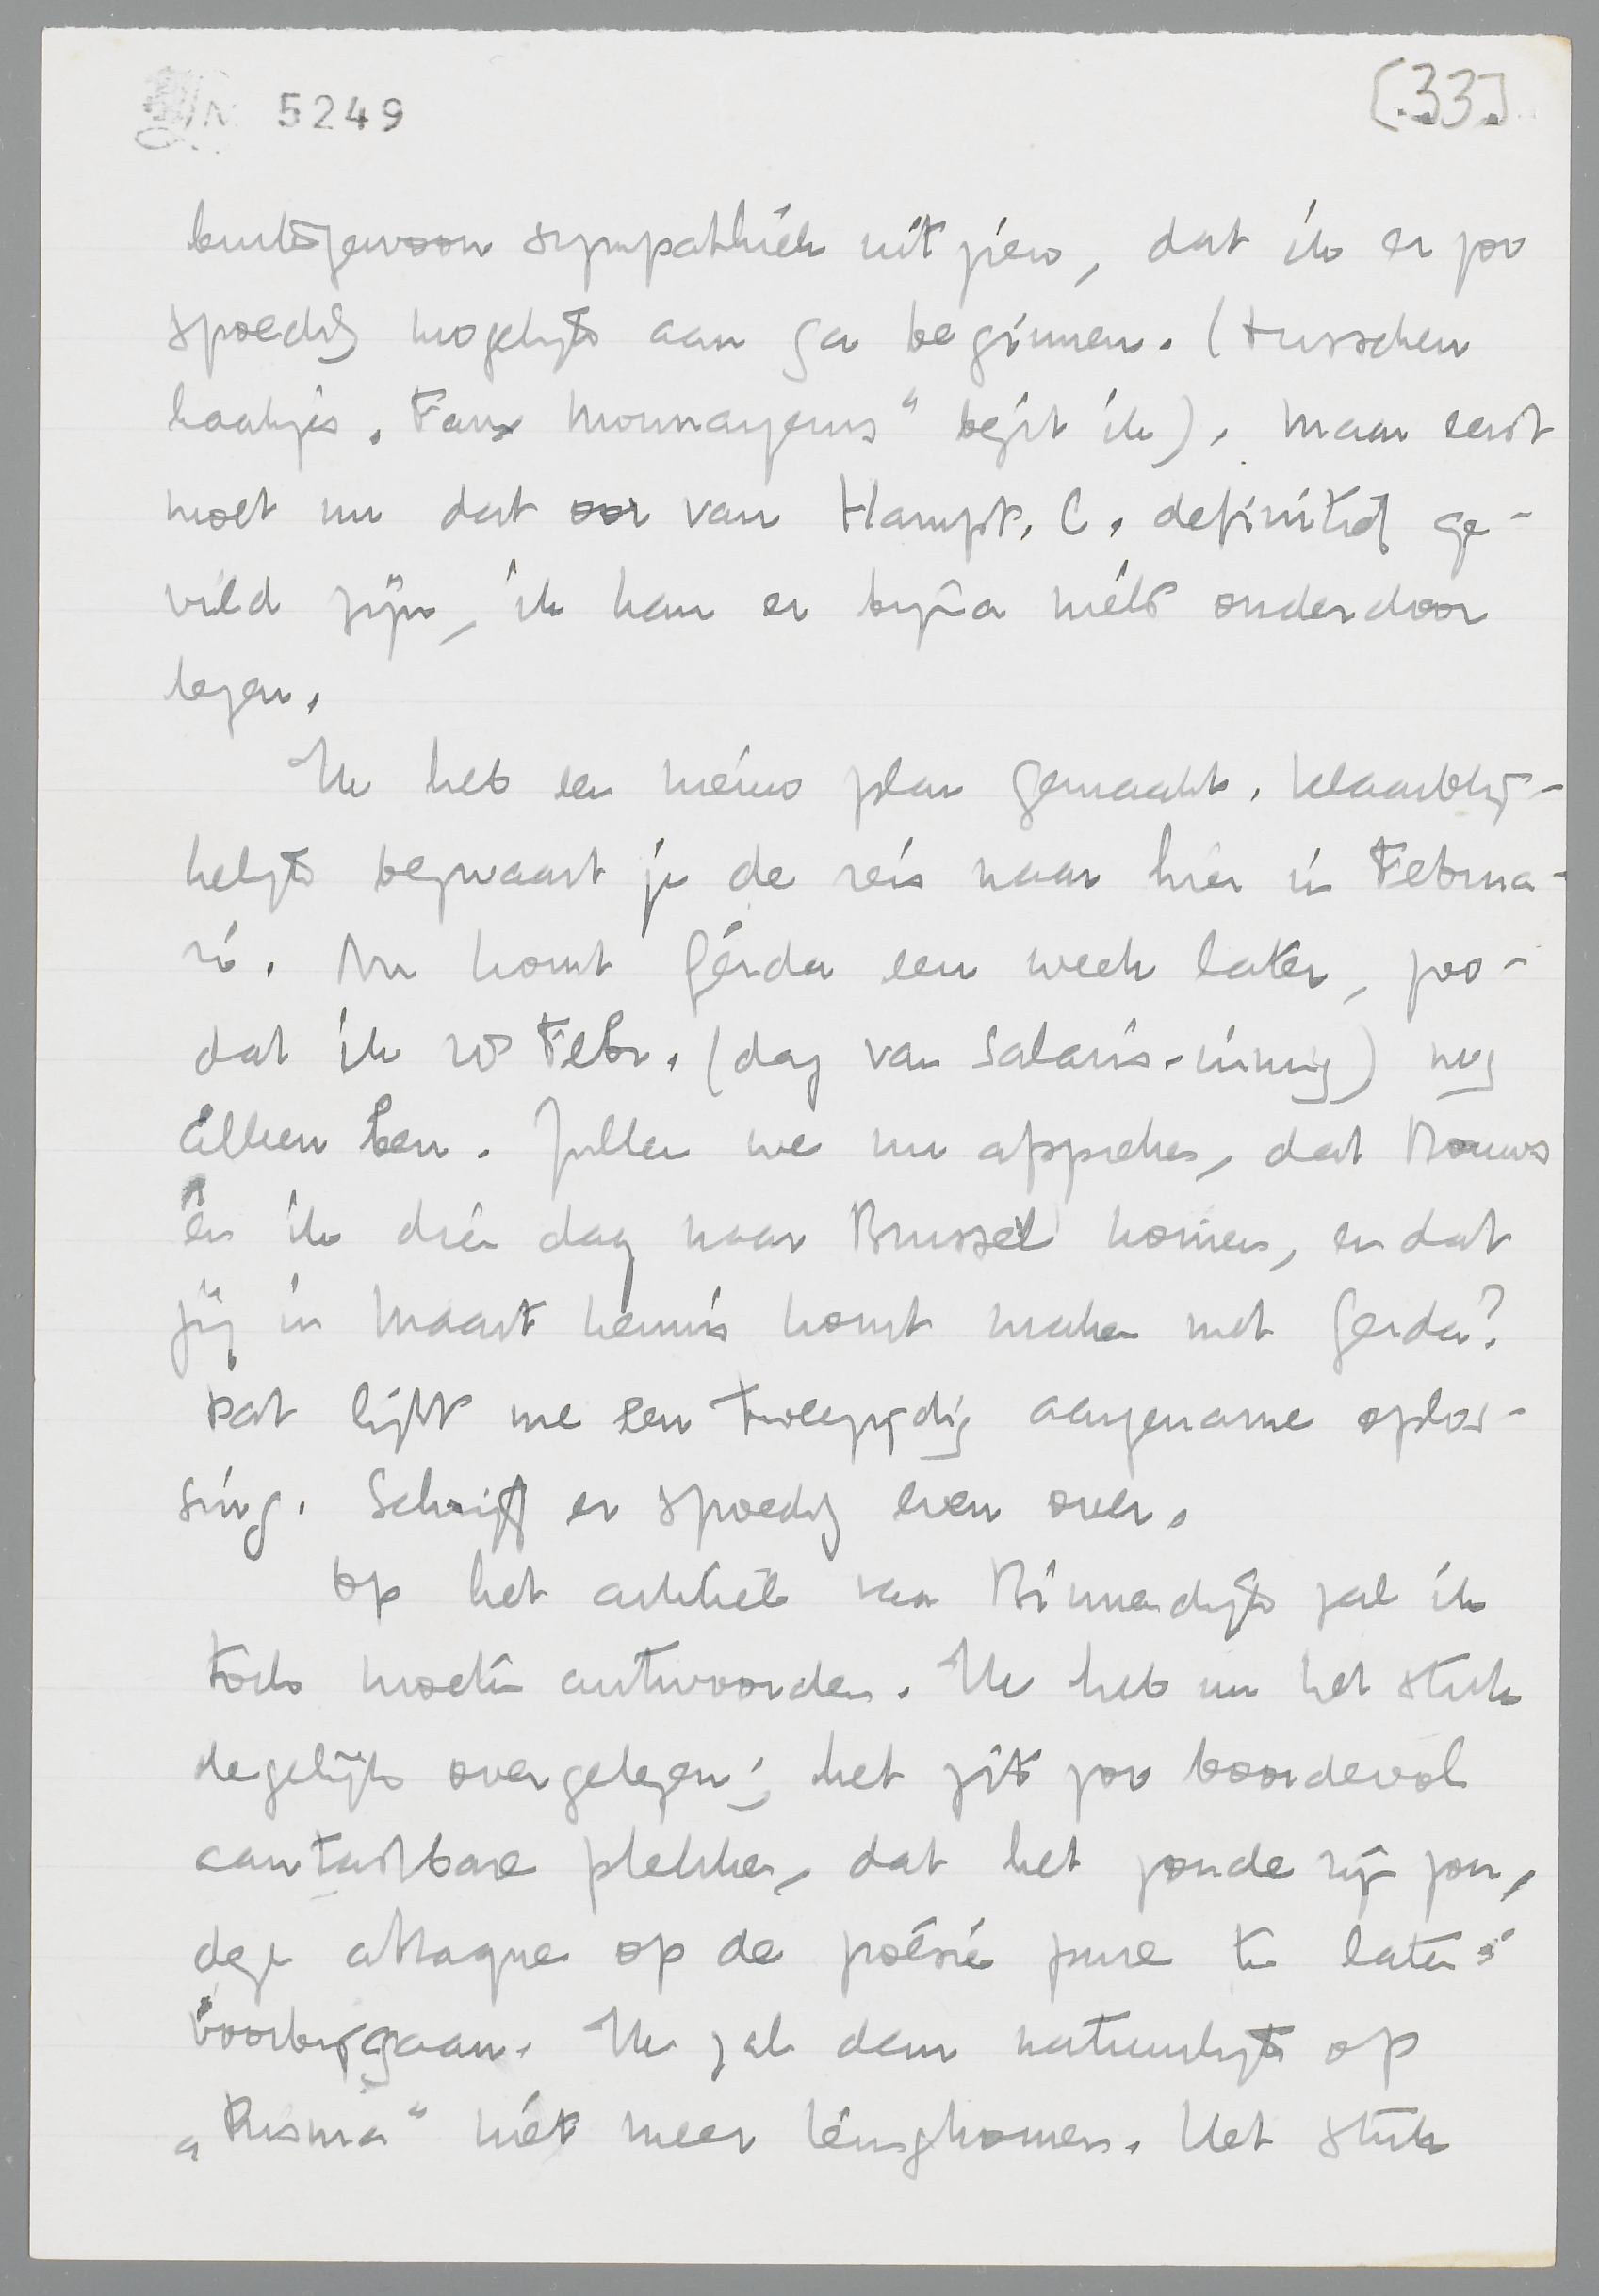 5249
[33]
buitengewoon sympathiek uit zien, dat ik er zoo
spoedig mogelijk aan ga beginnen. (tusschen
haakjes. „Faux Monnayeurs" bezit ik). Maar eerst
moet nu dat oor van Hampt. C. definitief ge-
vild zijn, ik kan er bijna niets onderdoor
lezen.
Ik heb een nieuw plan gemaakt. Klaarblij-
kelijk bezwaart je de reis naar hier in Februa-
ri. Nu komt Gerda een week later, zoo-
dat ik 20 Febr. (dag van salaris-inning) nog
alleen ben. Zullen we nu afspreken, dat Bouws
en ik dien dag naar Brussel komen, en dat
jij in Maart kennis komt maken met Gerda?
Dat lijkt me een tweezijdig aangename oplos-
sing. Schrijf er spoedig even over.
Op het artikel van Binnendijk zal ik
toch moeten antwoorden. Ik heb nu het stuk
degelijk overgelezen; het zit zoo boordevol
aantastbare plekken, dat het zonde zijn zou,
deze attaque op de poésie pure te laten
voorbijgaan. Ik zal dan natuurlijk op
„Prisma" niet meer terugkomen. Het stuk